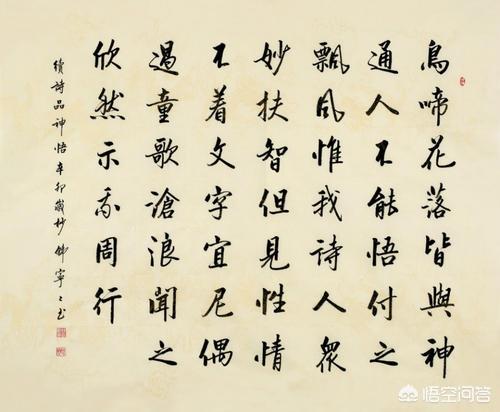 鳥啼花落皆與神
通人不能悟付之
飄風惟我詩人眾
妙扶智但見性情
不着文字宣尼偶
過童歌滄浪聞之
欣然示我周行
續詩品神悟辛卯歲杪韓寧〻書
悟空问答